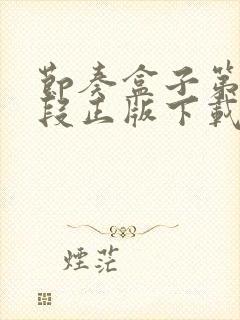 節奏盒子第
段正版下載
煙茫